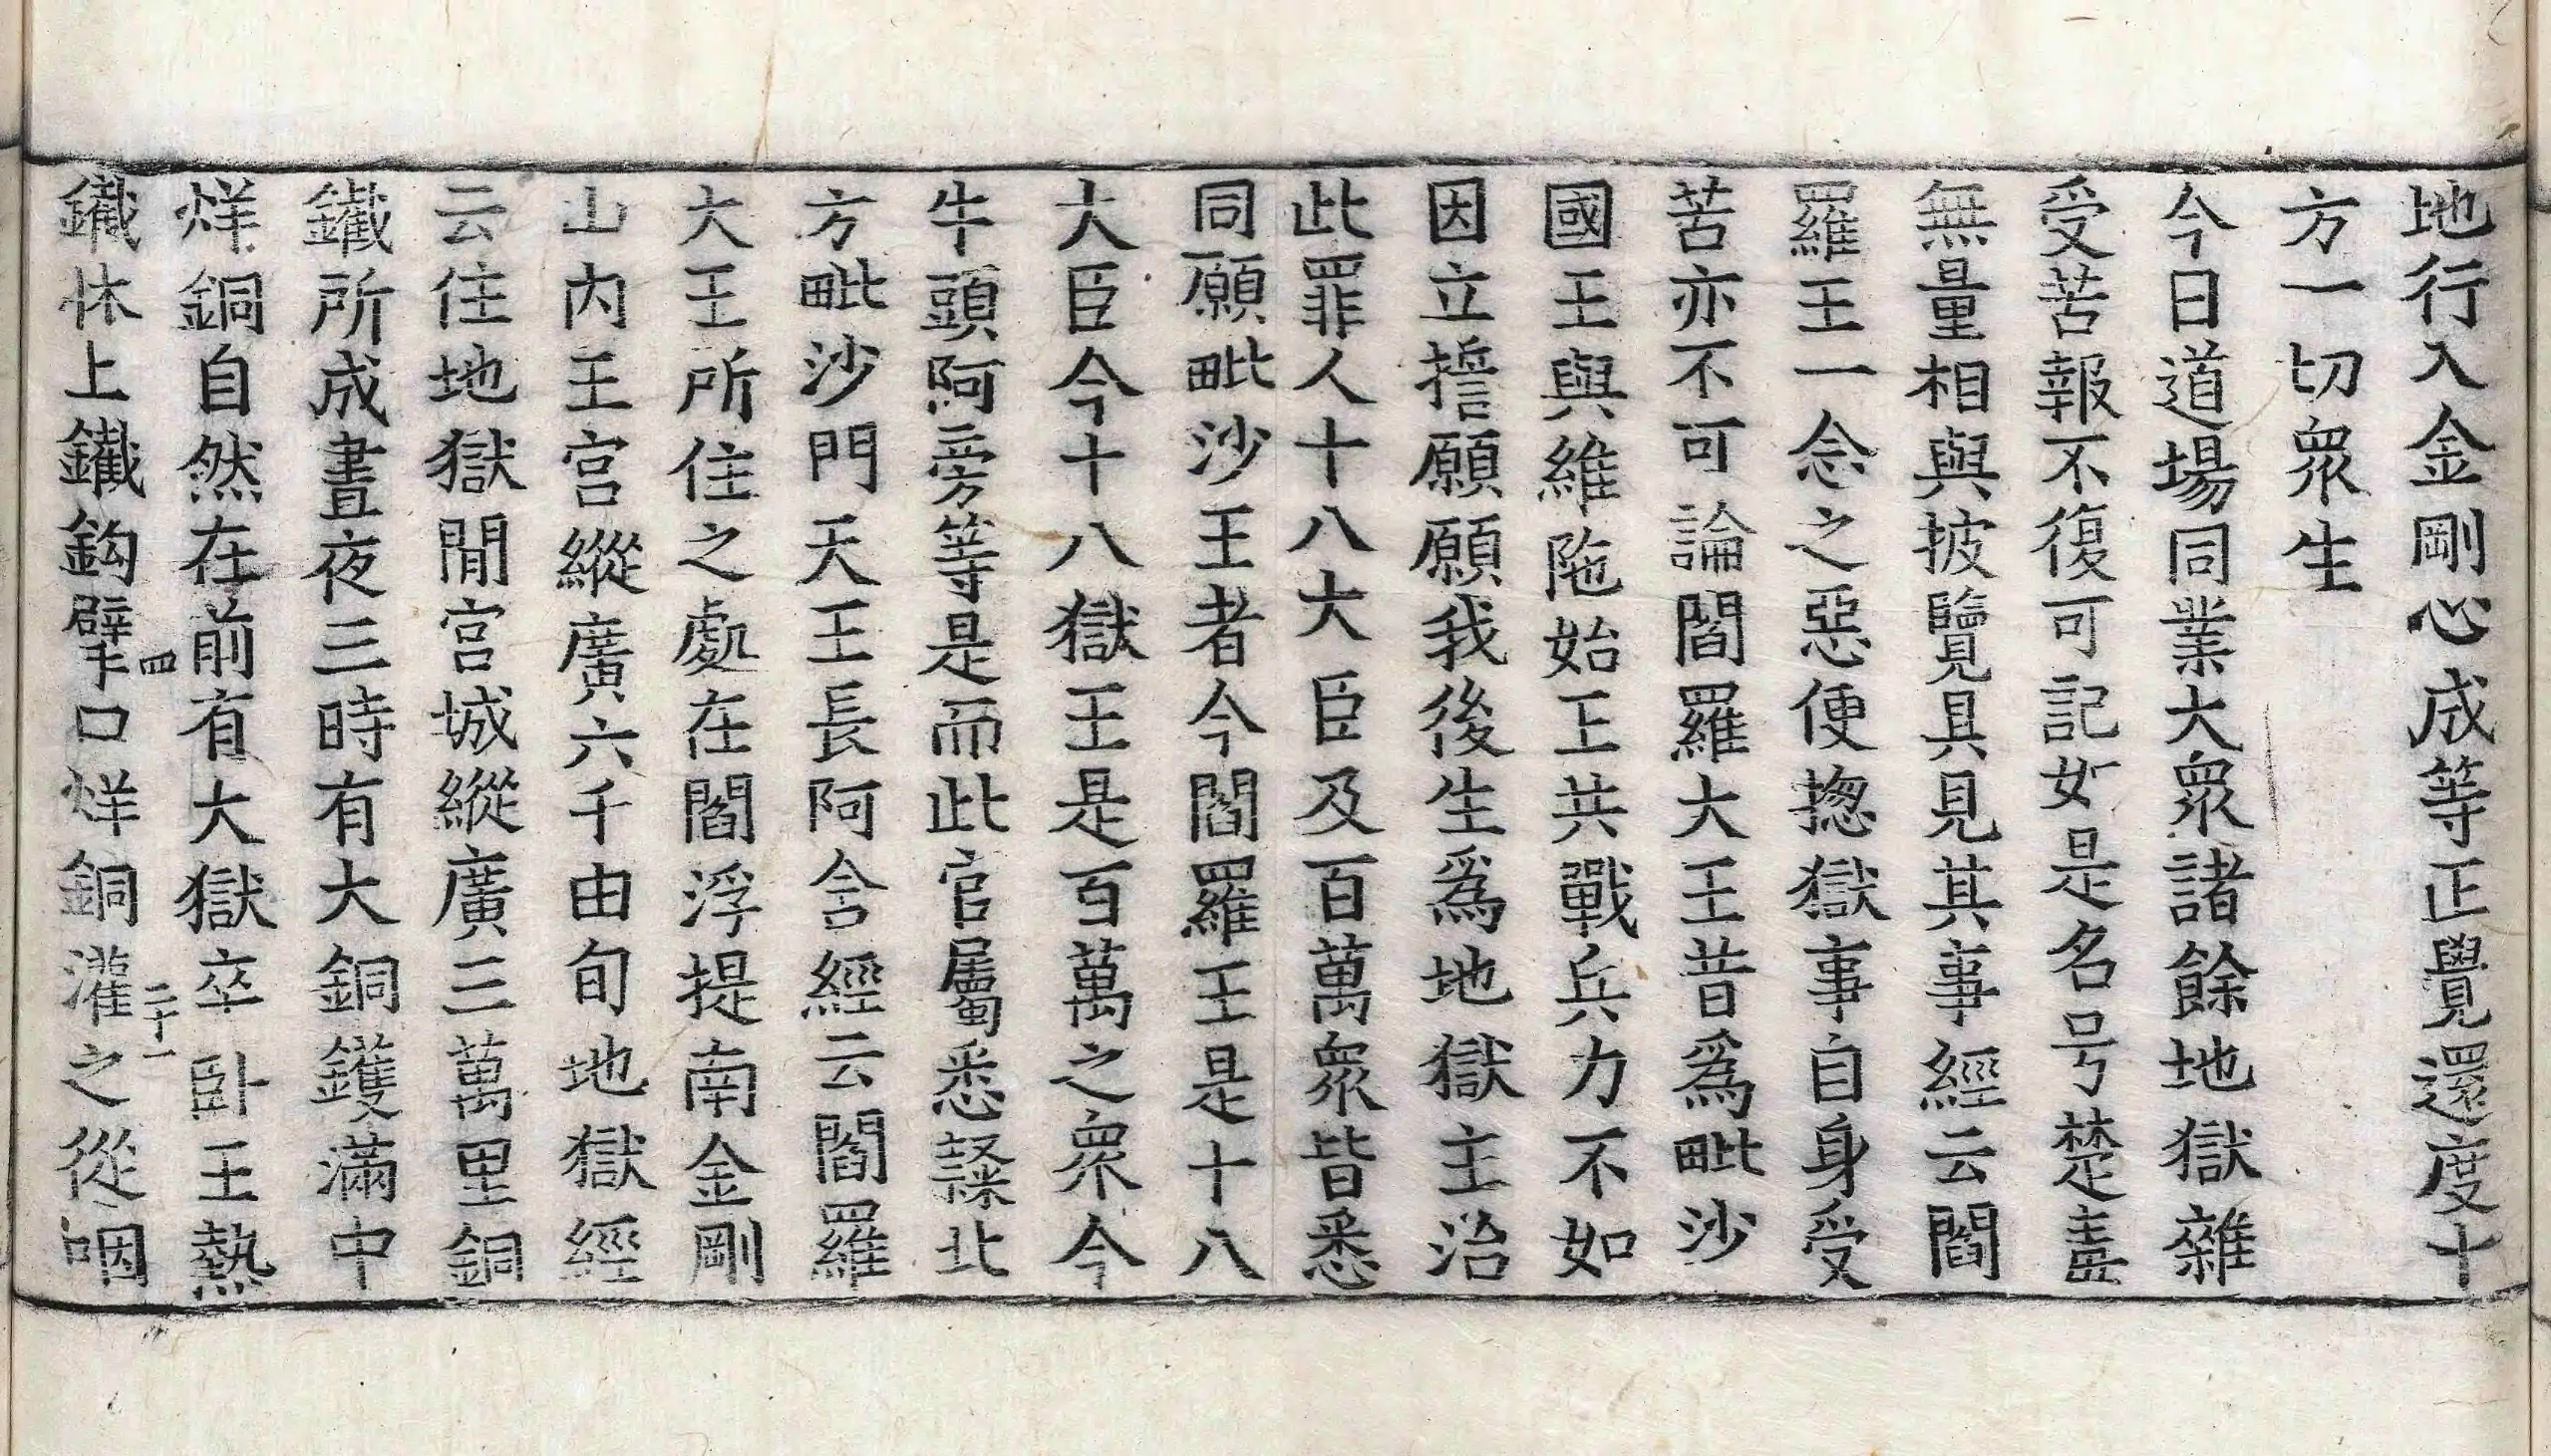 地行入金剛心成等正覺還度十
方一切衆生
今日道場同業大衆諸餘地獄雜
受苦報不復可記如是名号楚毒
無量相與披覽具見其事經云閻
羅王一念之惡便揔獄事自身受
苦亦不可論閻羅大王昔爲毗沙
國王與維陁始王共戰兵力不如
因立誓願願我後生爲地獄主治
此罪人十八大臣及百萬衆皆悉
同願毗沙王者今閻羅王是十八
大臣今十八獄王是百萬之衆今
牛頭阿旁等是而此官屬悉隷北
方毗沙門天王長阿含經云閻羅
大王所住之處在閻浮提南金剛
山內王宮縱廣六千由旬地獄經
云住地獄閒宮城縱廣三萬里銅
鐵所成晝夜三時有大銅鑊滿中
烊銅自然在前有大獄卒卧王熱
四 二十一
鐵牀上鐵鈎擘口烊銅灌之從咽